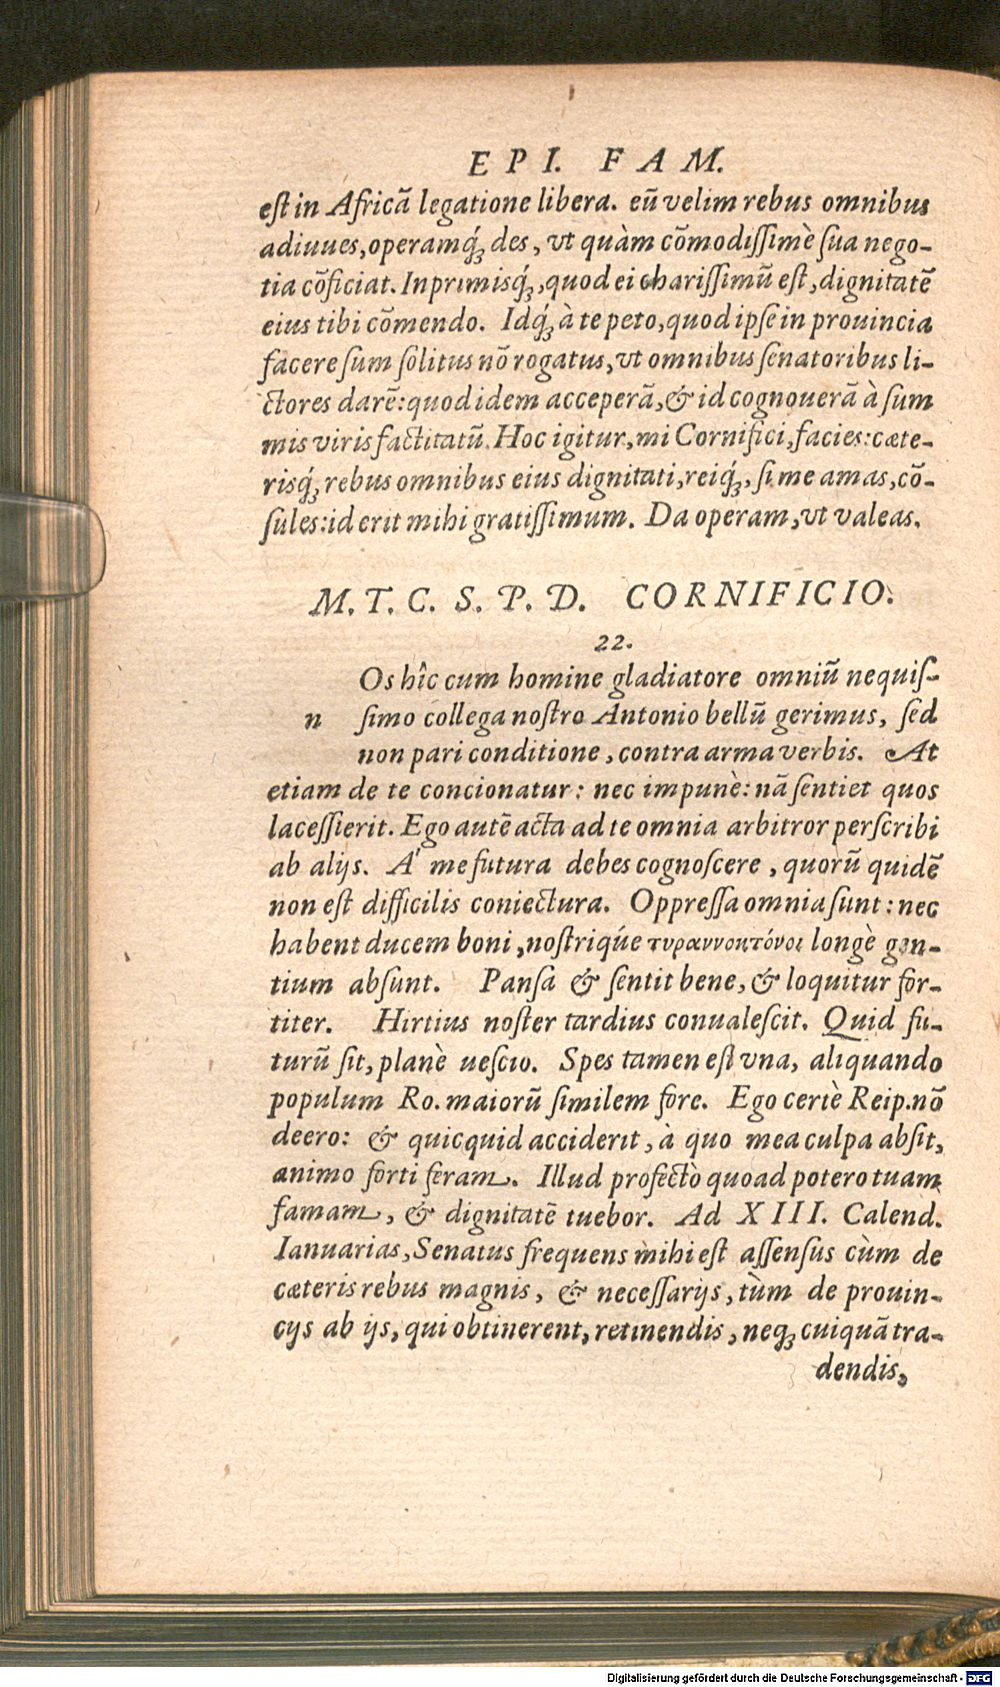 EPI. FAM.
est in Africā legatione libera. eū velim rebus omnibus
adiuues, operamq́ꝫ des, vt quàm cōmodissimè sua nego-
tia cōficiat. Inprimisq́ꝫ, quod ei charissimū est, dignitatē
eius tibi cōmendo. Idq́ꝫ à te peto, quod ipse in prouincia
facere sum solitus nō rogatus, vt omnibus senatoribus li-
ctores darē: quod idem acceperā, & id cognouerā à sum
mis viris factitatū. Hoc igitur, mi Cornifici, facies: cæte-
risq́ꝫ rebus omnibus eius dignitati, reiq́ꝫ, si me amas, cō-
sules: id erit mihi gratissimum. Da operam, vt valeas.
M. T. C. S. P. D. CORNIFICIO.
22.
Os hîc cum homine gladiatore omniū nequis-
n simo collega nostro Antonio bellū gerimus, sed
non pari conditione, contra arma verbis. At
etiam de te concionatur: nec impunè: nā sentiet quos
lacessierit. Ego autē acta ad te omnia arbitror perscribi
ab alijs. A' me futura debes cognoscere, quorū quidē
non est difficilis coniectura. Oppressa omnia sunt: nec
habent ducem boni, nostriqúe τυραννοκτόνοι longè gen-
tium absunt. Pansa & sentit bene, & loquitur for-
titer. Hirtius noster tardius conualescit. Quid fu-
turū sit, planè uescio. Spes tamen est vna, aliquando
populum Ro. maiorū similem fore. Ego certè Reip. nō
deero: & quicquid acciderit, à quo mea culpa absit,
animo forti feram. Illud profectò quoad potero tuam
famam, & dignitatē tuebor. Ad XIII. Calend.
Ianuarias, Senatus frequens mihi est assensus cùm de
cæteris rebus magnis, & necessarijs, tùm de prouin-
cijs ab ijs, qui obtinerent, retinendis, neqꝫ cuiquā tra-
dendis,
Digitalisierung gefördert durch die Deutsche Forschungsgemeinschaft - DFG